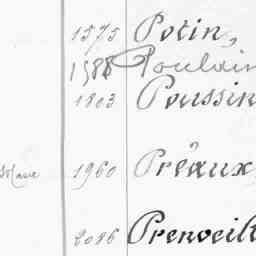 1575 Potin,
1588 Poulain
1803 Poussin
1960 Préaux
2086 Prenveill